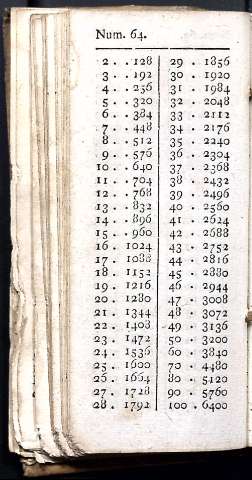 Num. 64.
2 . . 128
3 . . 192
4 . . 256
5 . . 320
6 . . 384
7 . . 448
8 . . 512
9 . . 576
10 . . 640
11 . . 704
12 . . 768
13 . . 832
14 . . 896
15 . . 960
16 . 1024
17 . 1088
18 . 1152
19 . 1216
20 . 1280
21 . 1344
22 . 1408
23 . 1472
24 . 1536
25 . 1600
26 . 1664
27 . 1728
28 . 1792
29 . 1856
30 . 1920
31 . 1984
32 . 2048
33 . 2112
34 . 2176
35 . 2240
36 . 2304
37 . 2368
38 . 2432
39 . 2496
40 . 2560
41 . 2624
42 . 2688
43 . 2752
44 . 2816
45 . 2880
46 . 2944
47 . 3008
48 . 3072
49 . 3136
50 . 3200
60 . 3840
70 . 4480
80 . 5120
90 . 5760
100 . 6400